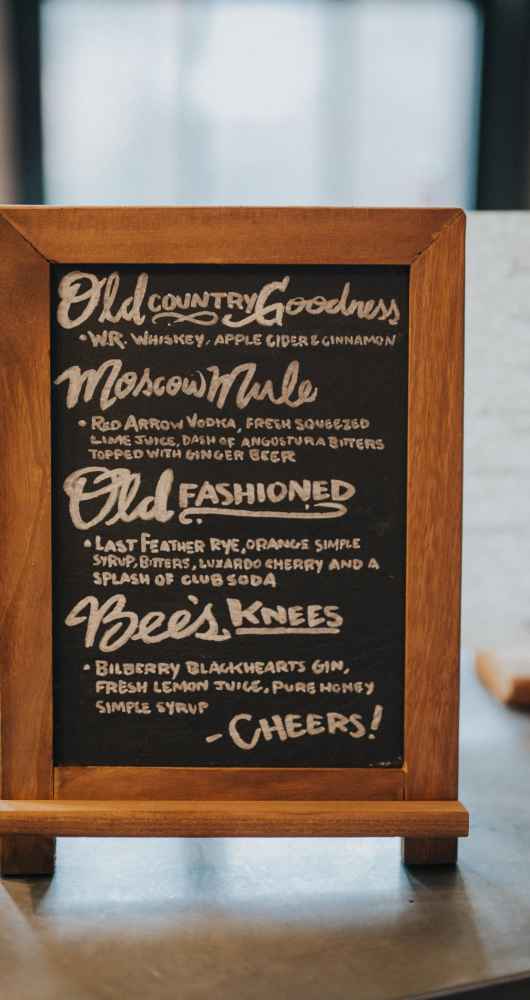 Old COUNTRY Goodness
• W.R. WHISKEY, APPLE CIDER & CINNAMON
Moscow Mule
• RED ARROW VODKA, FRESH SQUEEZED
LIME JUICE, DASH OF ANGOSTURA BITTERS
TOPPED WITH GINGER BEER
Old FASHIONED
• LAST FEATHER RYE, ORANGE SIMPLE
SYRUP, BITTERS, LUXARDO CHERRY AND A
SPLASH OF CLUB SODA
Bee's KNEES
• BILBERRY BLACKHEARTS GIN,
FRESH LEMON JUICE, PURE HONEY
SIMPLE SYRUP
- CHEERS!